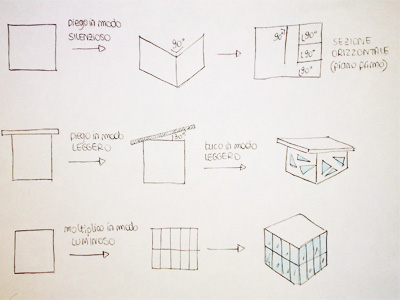 piego in modo
SILENZIOSO
90°
90°
90°
90°
90°
SEZIONE
ORIZZONTALE
(piano primo)
piego in modo
LEGGERO
80°
buco in modo
LEGGERO
moltiplico in modo
LUMINOSO